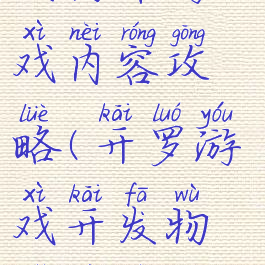 xì nèi róng gōng
戏内容攻
lüè kāi luó yóu
略(开罗游
xì kāi fā wù
戏开发物